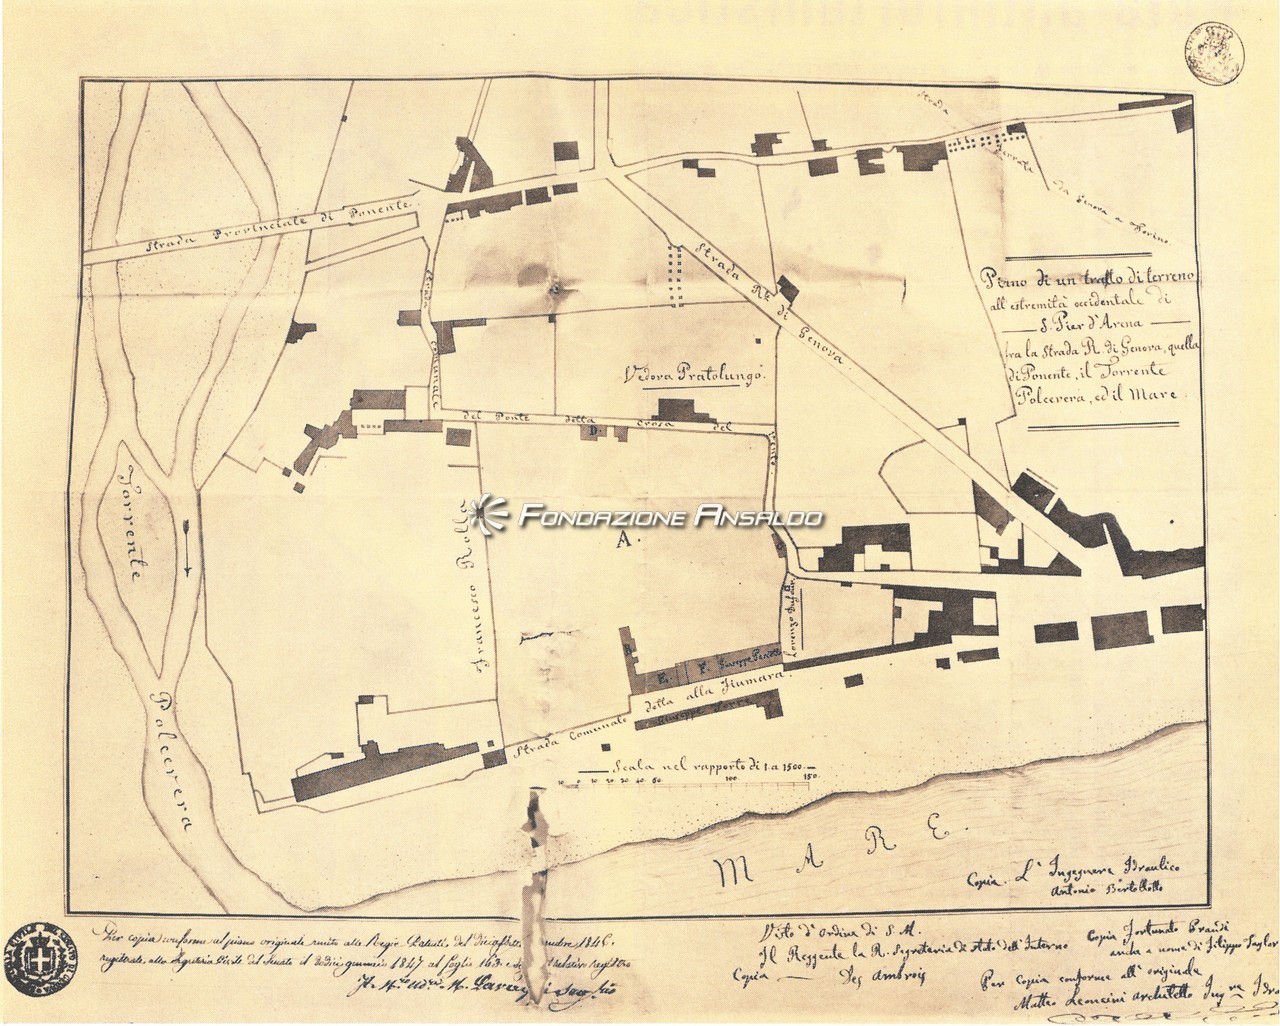 Strada
Ferrata
Da Genova a Torino
Strada Provinciale di Ponente.
Piano di un tratto di terreno
all'estremità occidentale di
S. Pier d'Arena
fra la Strada R. di Genova, quella
di Ponente, il Torrente
Polcevera, ed il Mare.
Strada Rle di Genova.
Strada Comunale
del Ponte della Crosa del Vento
Vedova Pratolungo.
D.
Torrente
Francesco Rolla
FONDAZIONE ANSALDO
A.
Lorenzo Dufour
B.
E. F. Giuseppe
Strada Comunale della alla Fiumara.
Giuseppe
Polcevera
Scala nel rapporto di 1 a 1500.
10 0 10 20 30 40 50 100 150
MARE.
Copia. L'Ingegnere Idraulico
Antonio Bertollotto
Per copia conforme al piano originale unito alle Regie Patenti, del
registrate alla Segreteria Civile del Senato il dodici gennaio 1847 al foglio
Visto d'Ordine di S. M.
Il Reggente la R. Segreteria di Stato dell'Interno
Copia Des Ambrois
Copia Fortunato Prandi
anche a nome di Filippo Taylor
Per copia conforme all'originale
Matteo Leoncini architetto